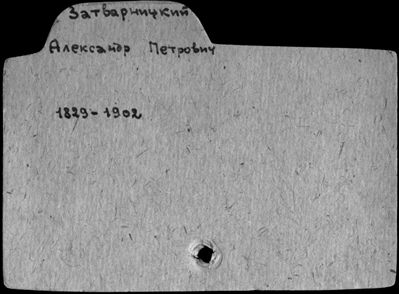 Затварницкий
Александр Петрович
1829-1902